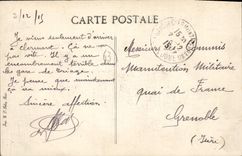 CARTE POSTALE
2/12/15
Je viens seulement d'arriver
à Clermont. Ça ne
pas vite. Il y a un
encombrement terrible dans
les gare de triage.
Je pense que maintenant
ça ira mieux.
Sincère affection.
Messieurs Commis
Manutention Militaire
quai de France
Grenoble
(Isère)